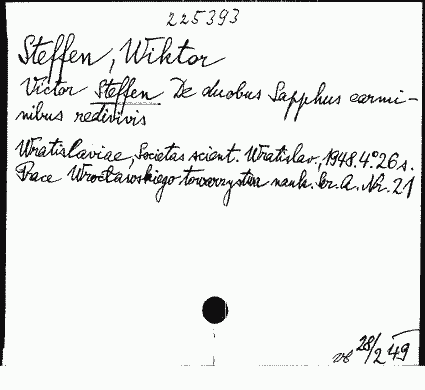 225393
Steffen, Wiktor
Victor Steffen De duobus Sapphus carmi-
nibus redivivis
Wratislaviae, Societas scient. Wratislav., 1948. 4° 26 s.
Prace Wrocławskiego towarzystwa nauk. Ser. A. Nr. 21
28/2 49